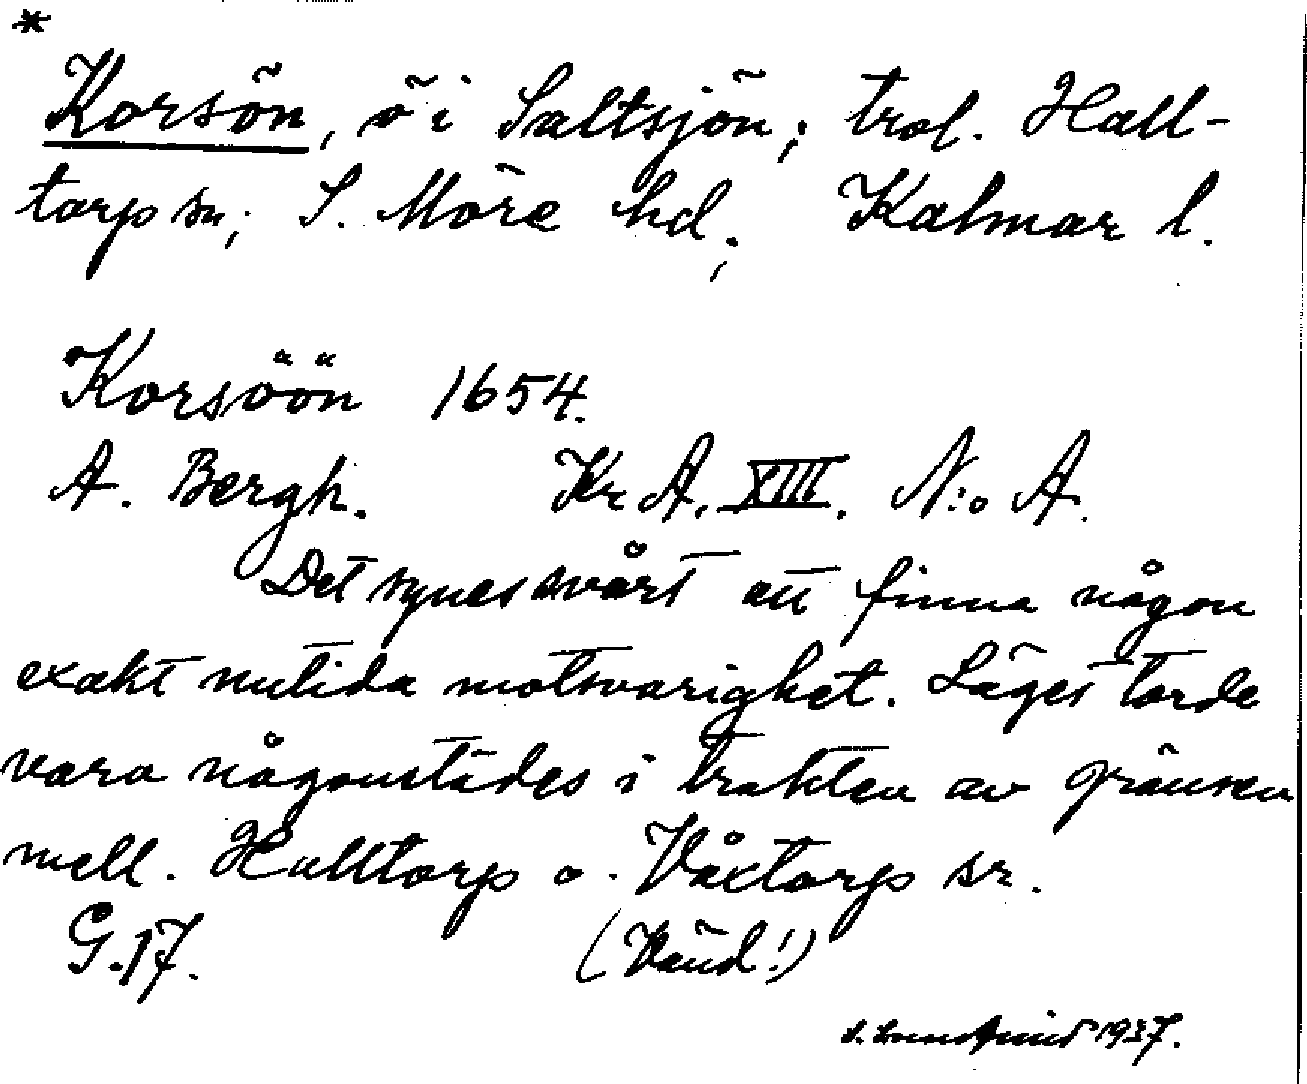 *
Korsön, ö i Saltsjön; trol. Hall-
torp sn; S. Möre hd; Kalmar l.
Korsöön 1654.
A. Bergh. Kr A. XIII. N:o A.
Det synes svårt att finna någon
exakt nutida motsvarighet. Läget torde
vara någonstädes i trakten av gränsen
mell. Halltorp o. Våxtorp sr.
G.17. (Vänd!)
1937.